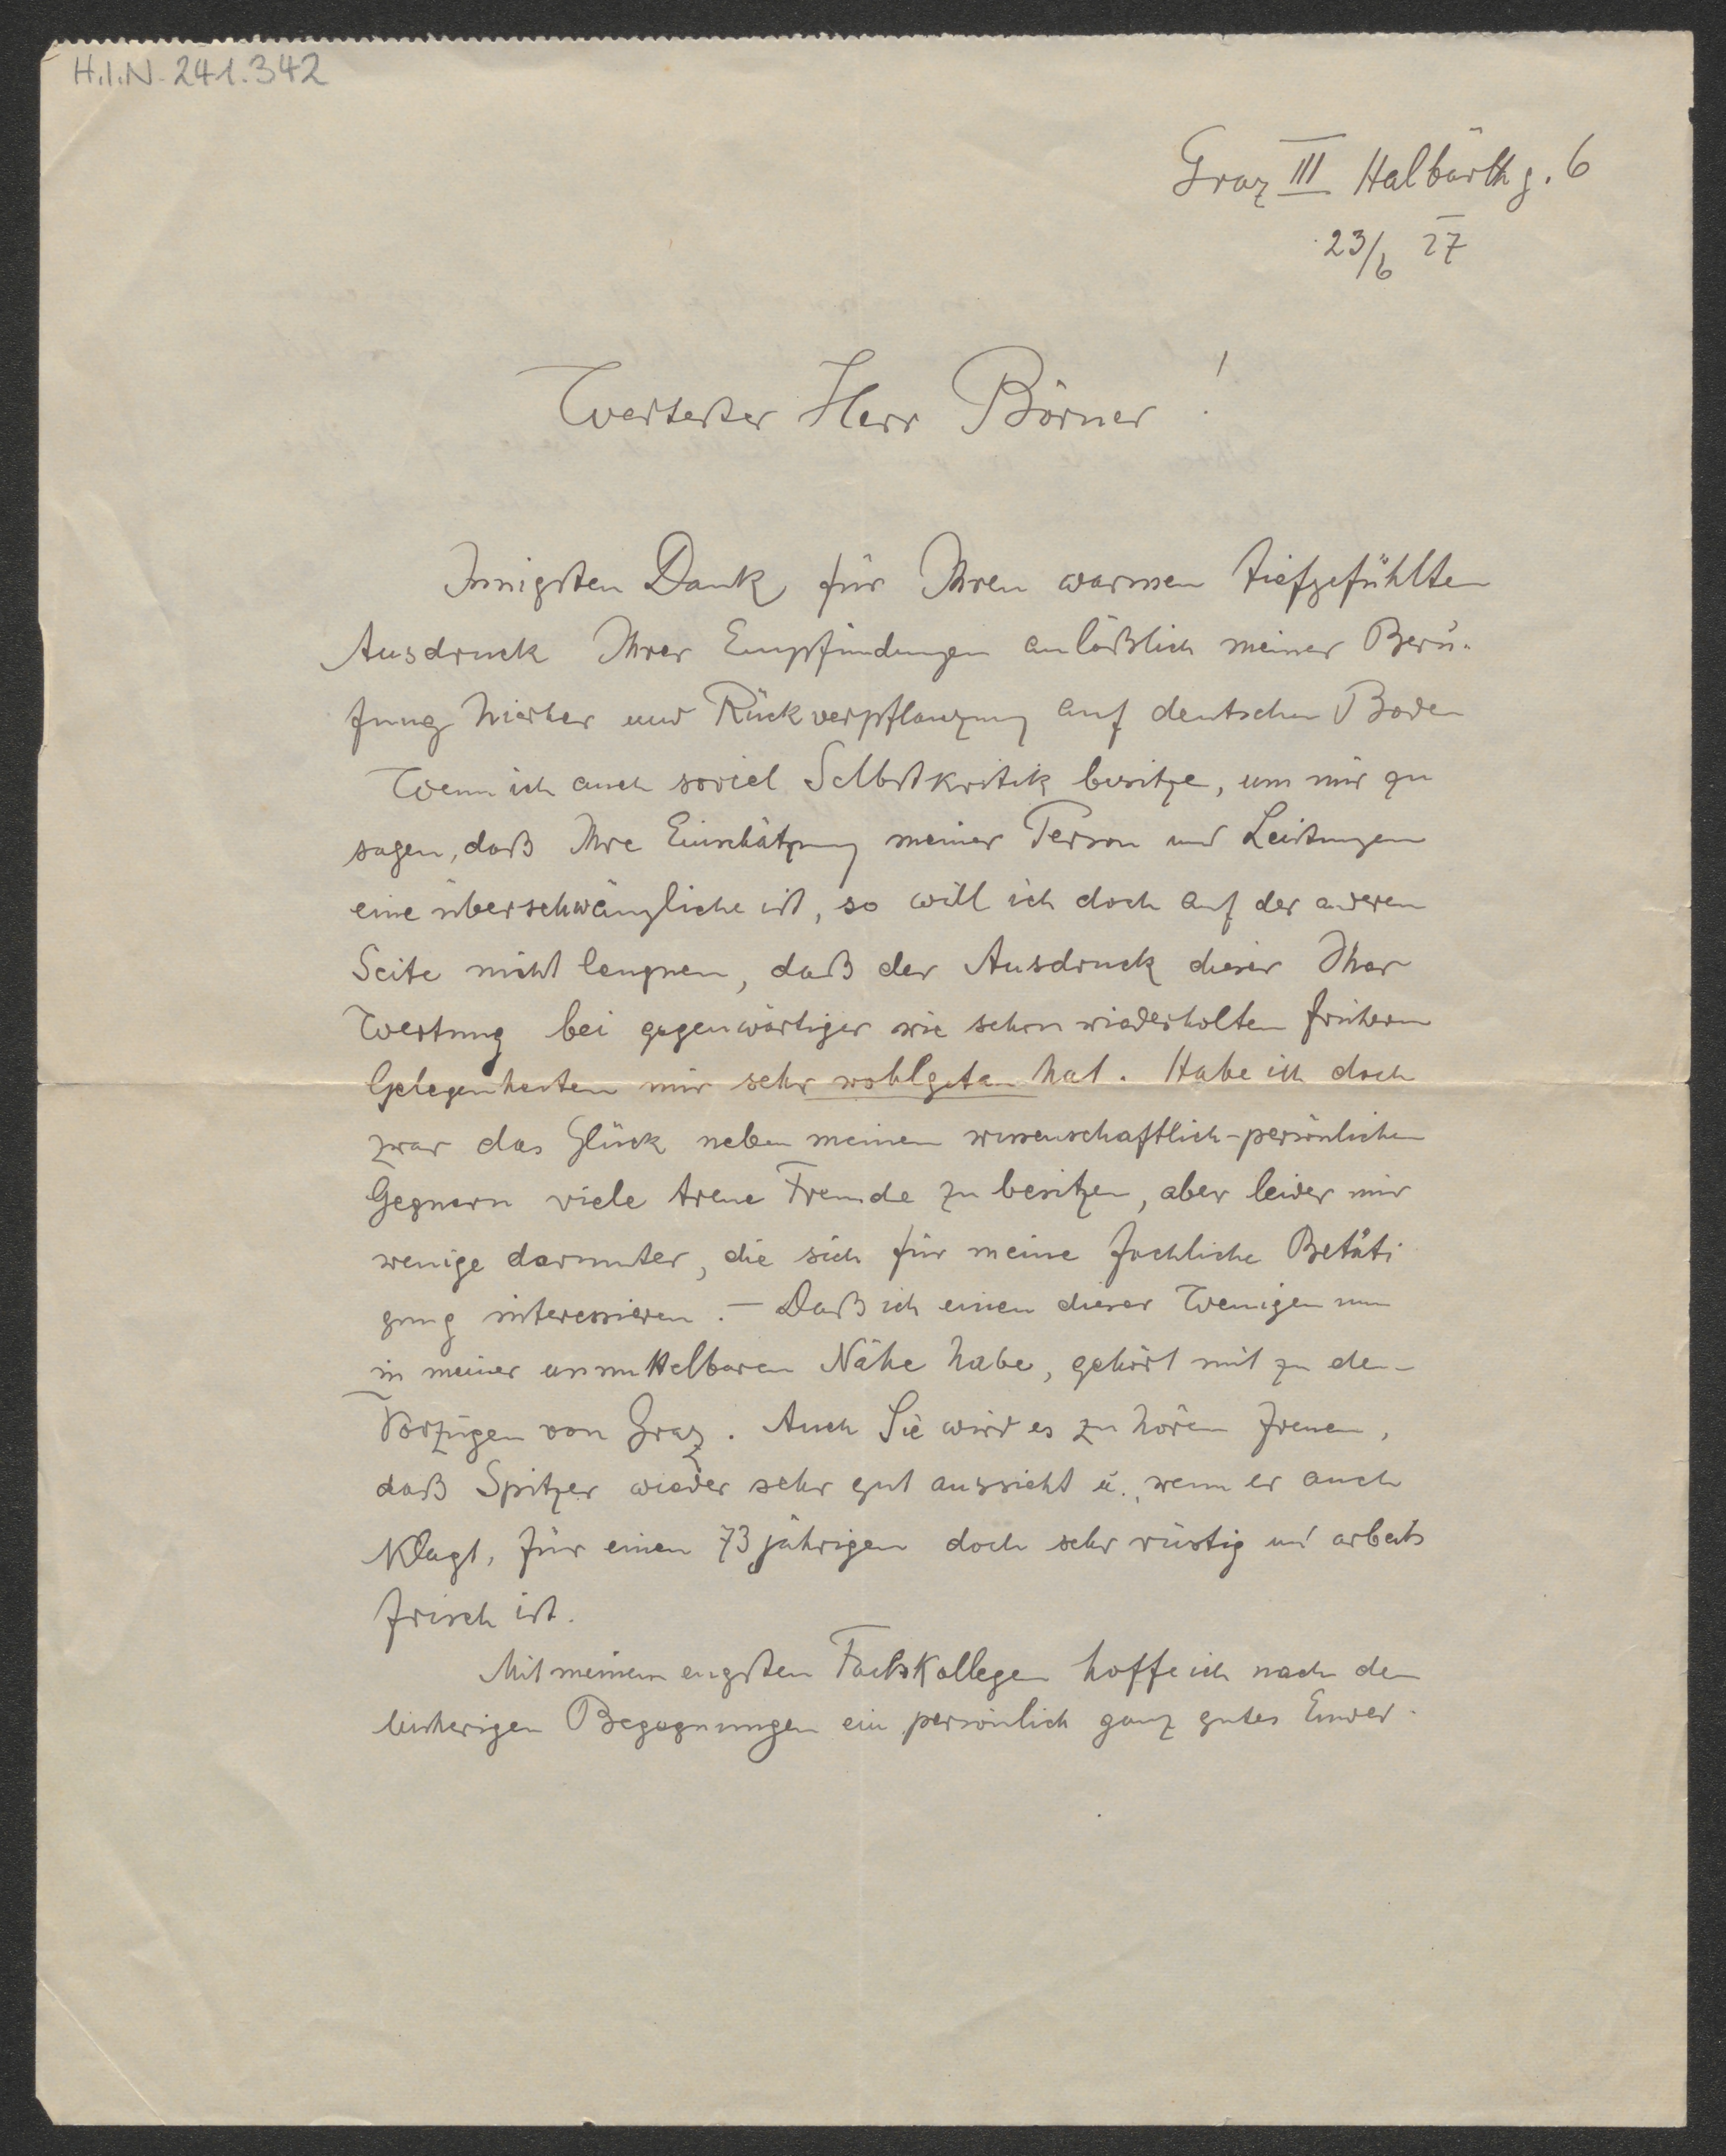 H.I.N. 241.342
Graz III Halbärthg. 6
23/6 27
Wertester Herr Börner!
Innigsten Dank für Ihren warmen tiefgefühlten
Ausdruck Ihrer Empfindungen anläßlich meiner Beru-
fung hierher und Rückverpflanzung auf deutschen Boden
Wenn ich auch soviel Selbstkritik besitze, um mir zu
sagen, daß Ihre Einschätzung meiner Person und Leistungen
eine überschwängliche ist, so will ich doch auf der anderen
Seite nicht leugnen, daß der Ausdruck dieser Ihrer
Wertung bei gegenwärtiger wie schon wiederholten frühern
Gelegenheiten mir sehr wohlgetan hat. Habe ich doch
zwar das Glück neben meinen wissenschaftlich-persönlichen
Gegnern viele treue Freunde zu besitzen, aber leider nur
wenige darunter, die sich für meine fachliche Betäti
gung interessieren. – Daß ich einen dieser Wenigen nun
in meiner unmittelbaren Nähe habe, gehört mit zu den
Vorzügen von Graz. Auch Sie wird es zu hören freuen,
daß Spitzer wieder sehr gut aussieht u., wenn er auch
klagt, für einen 73jährigen doch sehr rüstig und arbeits
frisch ist.
Mit meinem engsten Fachkollegen hoffe ich nach den
bisherigen Begegnungen ein persönlich ganz gutes Einver-